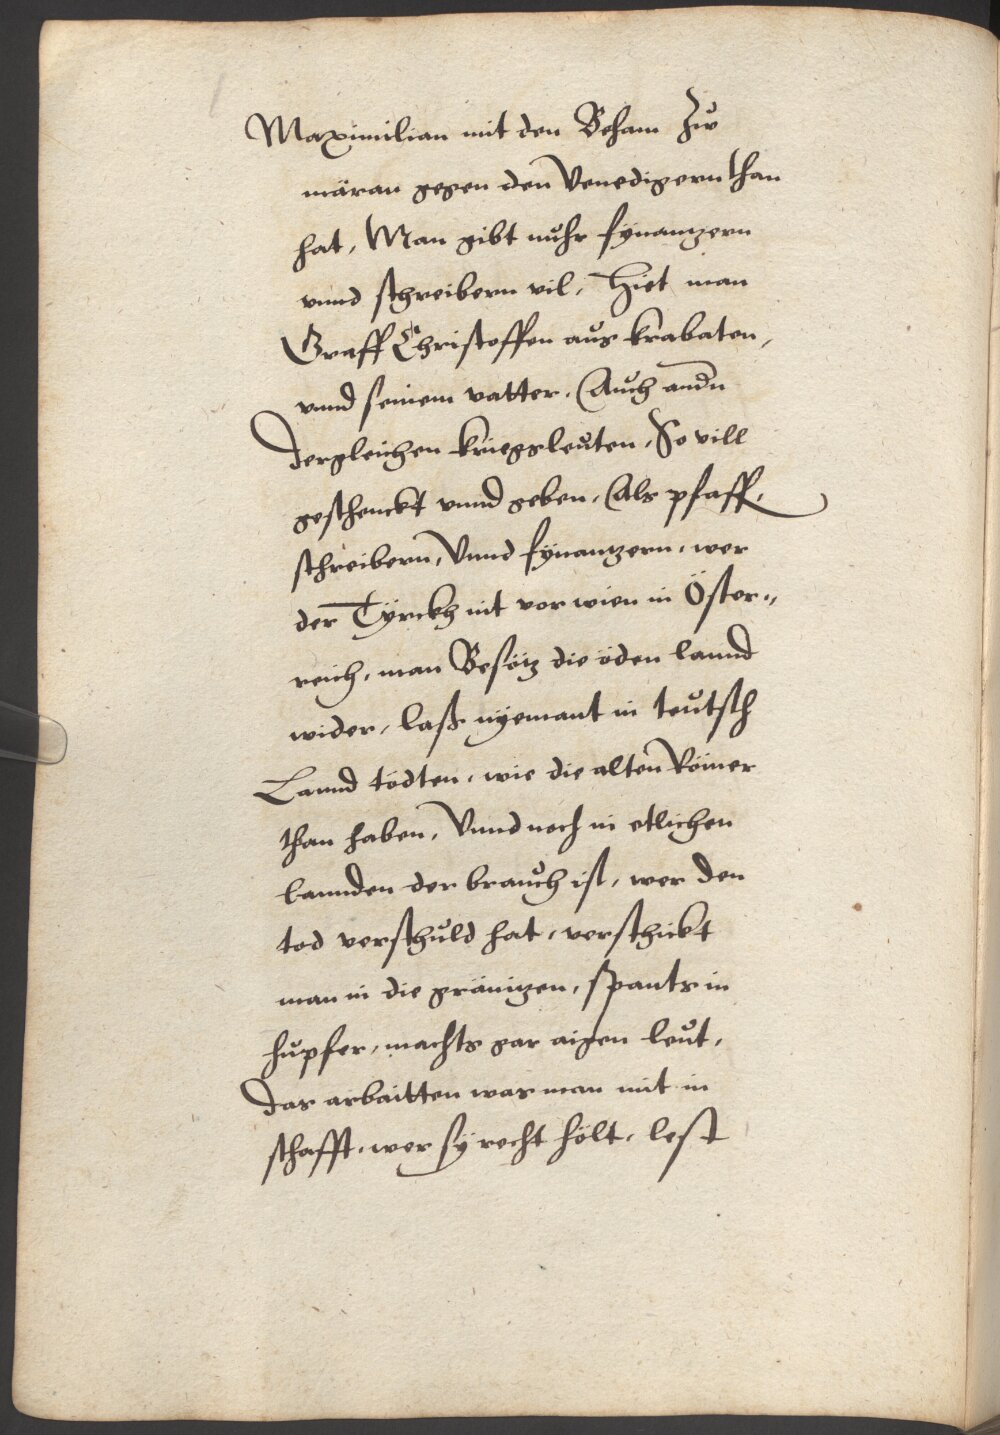 Maximilian mit den Beham Zuͦ
märan gegen den Venedigern than
hat, Man gibt nuͦhr fynantzern
vnnd schreibern vil, Hiet man
Graff Christoffen auͦs krabaten,
vnnd seinem vatter, Auͦch andn
dergleichen kriegsleuͦten, So vill
geschenckt vnnd geben, Als pfaff,
schreibern, Vnnd fynantzern, wer
der Tÿrckh nit vor wien in Öster„
reich, man Besötz die öden lannd
wider, laß nÿemant in teuͦtsch
Lannd tödten, wie die alten Römer
than haben, Vnnd noch in etlichen
lannden der brauͦch ist, wer den
tod verschuͦld hat, verschickt
man in die gränitzen, spants in
huͦpfer, machts gar aigen leuͦt,
das arbaitten was man mit in
schafft, wer sÿ recht hölt, lest